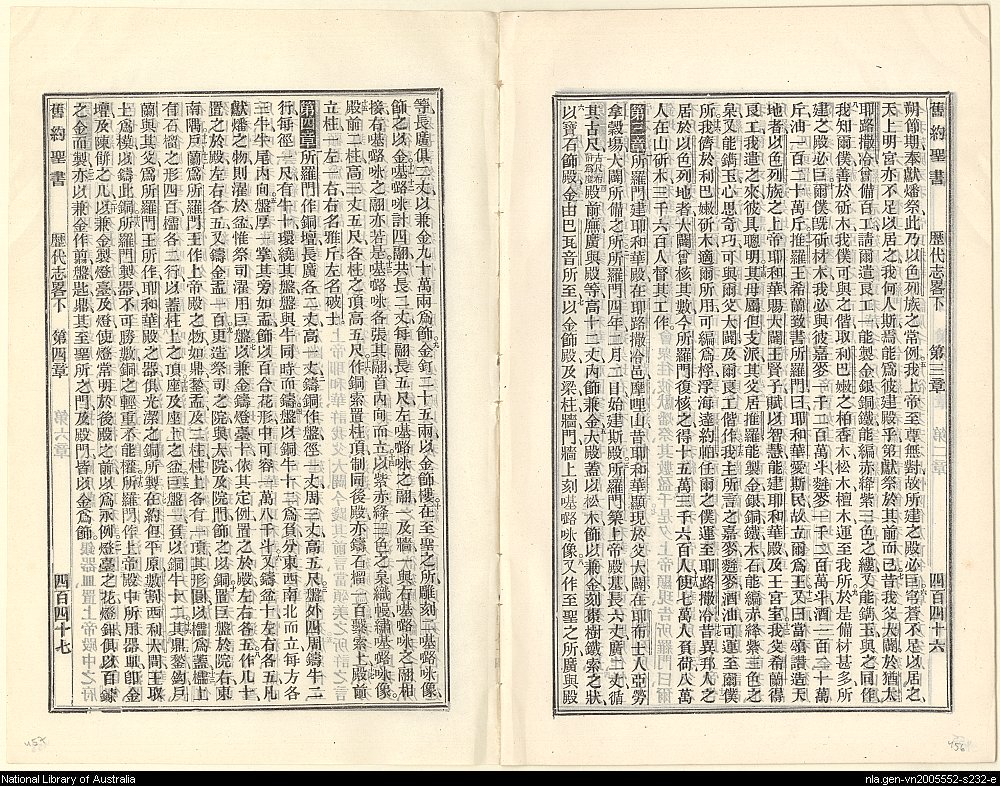 舊約聖書 歷代志畧下 第三章 四百四十六
朔節期奉獻燔祭此乃以色列族之常例我上帝至尊無對故所建之殿必巨穹蒼不足以居之
天上明宮亦不足以居之我何人斯焉能爲彼建殿乎第獻祭於其前而已昔我父大闢於猶太
耶路撒冷曾備百工請爾遣良工一能製金銀銅鐵能編赤絳紫三色之縷又能鐫玉與之同作
我知爾僕善於斫木我僕可與之偕取利巴嫩之柏香木松木檀木運至我所於是備材甚多所
建之殿必巨爾僕旣斫材木我必與彼嘉麥一千二百萬斗麰麥一千二百萬斗酒一百二十萬
斤油一百二十萬斤推羅王希蘭致書所羅門曰耶和華愛斯民故立爾爲王又曰當頌讚造天
地者以色列族之上帝耶和華賜大闢王賢子賦以智慧能建耶和華殿及王宮室我父希蘭得
良工我遣之來彼其聰明其母屬但支派其父居推羅能製金銀銅鐵木石能編赤絳紫三色之
枲又能鐫玉心思奇巧可與爾父大闢及爾良工偕作我主所言之嘉麥麰麥酒油可運至爾僕
所我儕於利巴嫩斫木適爾所用可編爲桴浮海達約帕任爾之僕運至耶路撒冷昔異邦人之
居於以色列地者大闢曾核其數今所羅門復核之得十五萬三千六百人使七萬人負荷八萬
人在山斫木三千六百人督其工作
第三章 所羅門建耶和華殿在耶路撒冷邑摩哩山昔耶和華顯現於父大闢在耶布士人亞勞
拿穀場大闢所備之所所羅門四年二月二日始建斯殿所羅門築上帝殿基長六丈廣二丈循
其古尺殿前廡廣與殿等高十二丈內飾兼金大殿蓋以松木飾以兼金刻棗樹鐵索之狀
以寶石飾殿金由巴瓦音所至以金飾殿及梁柱牆門牆上刻𠼻𡀔咏像又作至聖之所廣與殿
等長廣俱二丈以兼金九十萬兩爲飾金釘二十五兩以金飾樓在至聖之所雕刻二
飾之以金
殿前二柱高三丈五尺各柱之頂高五尺作銅索置柱頂制同後殿亦鑄石榴一百繫索上殿前
立柱一左一右右名雅斤左名破士
第四章 所羅門作銅壇長廣各二丈高一丈鑄銅作盤徑一丈周三丈高五尺盤外四周鑄牛二
行每徑一尺有牛十環繞其盤盤與牛同時而鑄盤以銅牛十二爲負分東西南北而立每方各
三牛牛尾內向盤厚一掌其旁如盂飾以百合花形中可容一萬八千斗又鑄盆十左右各五凡
獻燔之物則濯於盆惟祭司濯用巨盤以兼金鑄燈臺十依其定例置之於殿左右各五作几十
置之於殿左右各五又鑄金盂一百更造祭司之院與大院及院門飾之以銅置巨盤於院右東
南隅戶蘭爲所羅門王所作上帝殿之物如鼎鍫盂及二柱柱上各有一頂其形圓以櫺爲蓋櫺上
有石榴之形四百櫺各二行以蓋柱上之頂座及座上之盆巨盤一負以銅牛十二其鼎鍫鈎戶
蘭與其父爲所羅門王所作耶和華殿之器俱光潔之銅所製在約但平原數割西利大間王取
土爲模以鑄此銅所羅門製器不可勝數銅之輕重不能權所羅門作上帝殿中所用器皿卽金
壇及陳餅之几以兼金製燈臺及燈使燈常明於後殿之前以爲永例燈臺之花燈鉗俱以百鍊
之金而製亦以兼金作剪盤匙鼎其至聖所之門及殿門皆以金爲飾
舊約聖書 歷代志畧下 第四章 四百四十七
457
456
National Library of Australia
nla.gen-vn2005552-s232-e